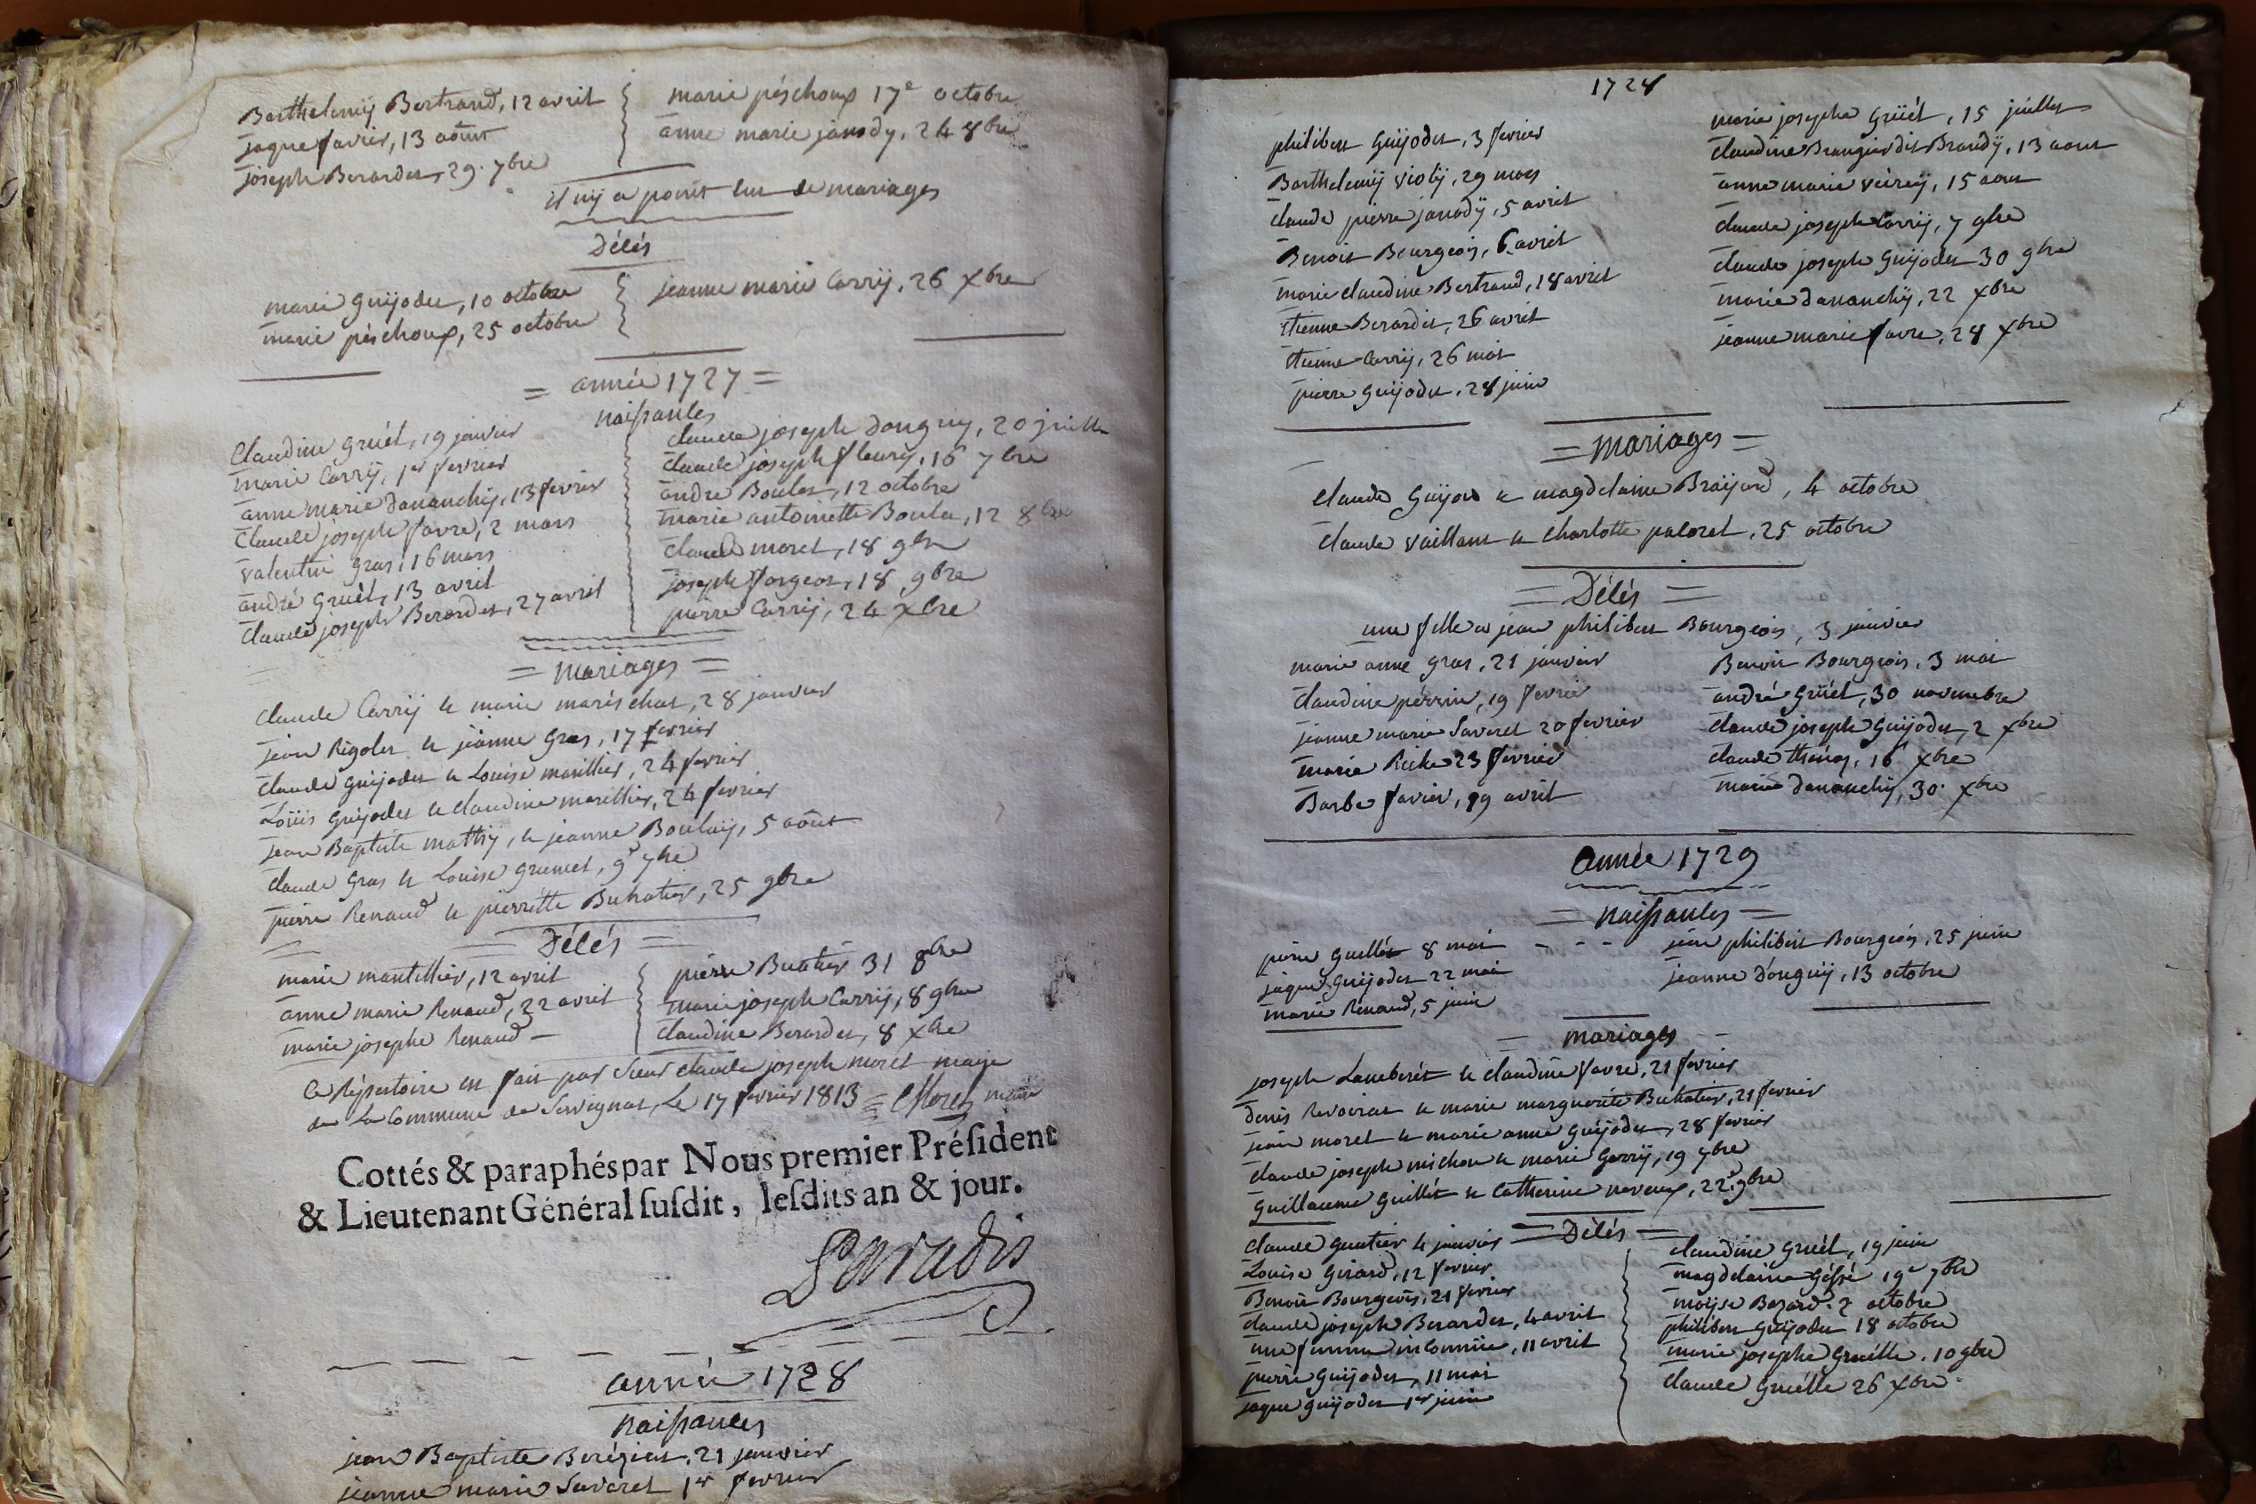 Barthelemÿ Bertrand, 12 avril
jaque favier, 13 aoust
joseph Berardet, 29. 7bre
marie péschoux 17e octobre
anne marie janody, 24 8bre
il n'ÿ a point eu de mariages
Décés
marie Guÿodet, 10 octobre
marie péschoux, 25 octobre
jeanne marie Carrÿ, 26 xbre
= année 1727 =
naissances
Claudine Gruél, 19 janvier
marie Carrÿ, 1er fevrier
anne marie dananchÿ, 13 fevrier
Claude joseph favre, 2 mars
valentin gras, 16 mars
andré Gruél, 13 avril
Claude joseph Berardet, 27 avril
Claude joseph donguy, 20 juillet
Claude joseph fleury, 16 7bre
andre Boulet, 12 octobre
marie antoinette Boulet, 12 8bre
Claude moret, 18 9bre
joseph forgeot, 18 9bre
pierre Carrÿ, 24 xbre
= mariages =
Claude Carrÿ et marie maréschat, 28 janvier
jean Rigolet et jeanne Gras, 17 fevrier
Claude Guÿodet et Louise marillier, 24 fevrier
Loüis Guÿodet et Claudine marillier, 24 fevrier
jean Baptiste mathÿ, et jeanne Boulaÿ, 5 août
Claude Gras et Louise Grumet, 9e 7bre
pierre Renaud et pierrétte Buhatier, 25 9bre
= Décés =
marie mantellier, 12 avril
anne marie Renaud, 22 avril
marie joséphe Renaud —
pierre Buatier 31 8bre
marie joseph Carrÿ, 8 9bre
Claudine Berardet, 8 xbre
Ce Répertoire est fait par Sieur Claude joseph moret maire
de La Commune de Servignat, Le 17 fevrier 1813 = CMoret maire
Cottés & paraphés par Nous premier Préſident
& Lieutenant Général ſuſdit, leſdits an & jour.
Paradis
année 1728
naissances
jean Baptiste Beréziat, 21 janvier
jeanne marie Savaret 1er fevrier
1728
philibert Guÿodet, 3 fevrier
Barthelemÿ violÿ, 29 mars
Claude pierre janodÿ, 5 avril
Benoit Bourgeois, 6 avril
marie Claudine Bertrand, 18 avril
Etienne Berardet, 26 avril
Etienne Carrÿ, 26 mai
pierre Guÿodet, 28 juin
marie josephe Grüél, 15 juillet
Claudine Brangier dit Brandÿ, 13 aout
anne marie véireÿ, 15 aout
Claude joseph Carrÿ, 7 9bre
Claude joseph Guÿodet 30 9bre
marie dananchÿ, 22 xbre
jeanne marie favre, 28 xbre
= Mariages =
Claude Guÿon et magdelaine Braÿard, 4 octobre
Claude vaillant et Charlotte paloret, 25 octobre
= Décés =
une fille a jean philibert Bourgeois, 3 janvier
marie anne gras, 21 janvier
Claudine pérrin, 19 fevrier
jeanne marie Savaret 20 fevrier
marie Riche 23 fevrier
Barbe favier, 19 avril
Benoit Bourgeois, 3 mai
andré Grüél, 30 novembre
Claude joseph Guÿodet, 2 xbre
Claude thénoz, 16 xbre
marie dananchÿ, 30. xbre
année 1729
= naissances =
pierre Guillét 8 mai
jaque Guÿodet 22 mai
marie Renaud, 5 juin
jean philibert Bourgeois, 25 juin
jeanne donguÿ, 13 octobre
mariages
joseph Lamberét et Claudine favre, 21 fevrier
denis Ravoirat et marie marguerite Buhatier, 21 fevrier
jean moret et marie anne Guÿodet, 28 fevrier
Claude joseph michon et marie Carrÿ, 19 7bre
Guillaume Guillét et Catherine neveux, 22. 9bre
= Décés =
Claude Guatier 4 janvier
Louise Girard, 12 fevrier
Benoit Bourgeois, 21 fevrier
Claude joseph Berardet, 4 avril
une femme inconnüe, 11 avril
pierre Guÿodet, 11 mai
jaque Guÿodet 1er juin
Claudine Gruél, 19 juin
magdelaine 19e 7bre
moÿse Bozard. 2 octobre
philibert Guÿodet 18 octobre
marie joséphe Gruélle, 10 9bre
Claude Gruélle 26 xbre